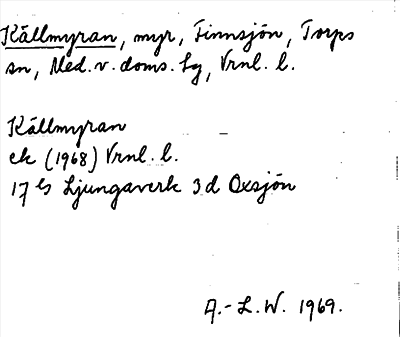 Källmyran, myr, Finnsjön, Torps
sn, Med. v. doms. lg, Vrnl. l.
Källmyran
ek (1968) Vrnl. l.
Ljungaverk 3d Oxsjön
A.-L.W. 1969.